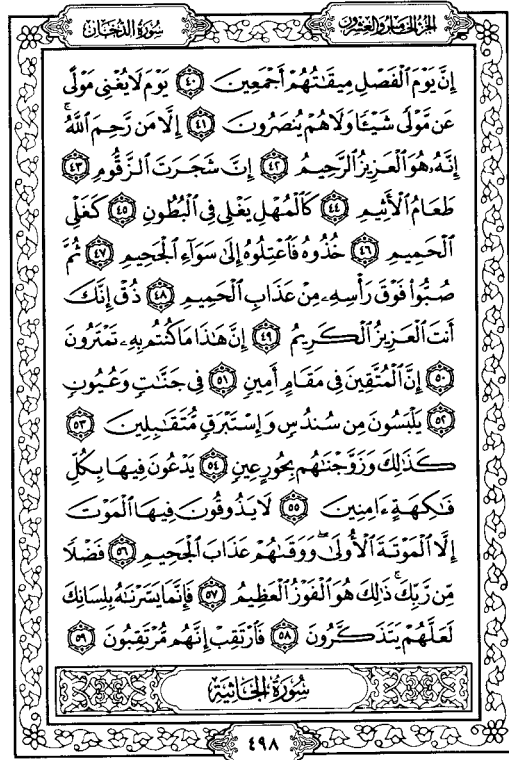 الجزء الخامس والعشرون سورة الدخان
إِنَّ يَوْمَ ٱلْفَصْلِ مِيقَٰتُهُمْ أَجْمَعِينَ ٤٠ يَوْمَ لَا يُغْنِى مَوْلًى
عَن مَّوْلًى شَيْـًٔا وَلَا هُمْ يُنصَرُونَ ٤١ إِلَّا مَن رَّحِمَ ٱللَّهُ ۚ
إِنَّهُۥ هُوَ ٱلْعَزِيزُ ٱلرَّحِيمُ ٤٢ إِنَّ شَجَرَتَ ٱلزَّقُّومِ ٤٣
طَعَامُ ٱلْأَثِيمِ ٤٤ كَٱلْمُهْلِ يَغْلِى فِى ٱلْبُطُونِ ٤٥ كَغَلْىِ
ٱلْحَمِيمِ ٤٦ خُذُوهُ فَٱعْتِلُوهُ إِلَىٰ سَوَآءِ ٱلْجَحِيمِ ٤٧ ثُمَّ
صُبُّوا۟ فَوْقَ رَأْسِهِۦ مِنْ عَذَابِ ٱلْحَمِيمِ ٤٨ ذُقْ إِنَّكَ
أَنتَ ٱلْعَزِيزُ ٱلْكَرِيمُ ٤٩ إِنَّ هَٰذَا مَا كُنتُم بِهِۦ تَمْتَرُونَ
٥٠ إِنَّ ٱلْمُتَّقِينَ فِى مَقَامٍ أَمِينٍ ٥١ فِى جَنَّٰتٍ وَعُيُونٍ
٥٢ يَلْبَسُونَ مِن سُندُسٍ وَإِسْتَبْرَقٍ مُّتَقَٰبِلِينَ ٥٣
كَذَٰلِكَ وَزَوَّجْنَٰهُم بِحُورٍ عِينٍ ٥٤ يَدْعُونَ فِيهَا بِكُلِّ
فَٰكِهَةٍ ءَامِنِينَ ٥٥ لَا يَذُوقُونَ فِيهَا ٱلْمَوْتَ
إِلَّا ٱلْمَوْتَةَ ٱلْأُولَىٰ ۖ وَوَقَىٰهُمْ عَذَابَ ٱلْجَحِيمِ ٥٦ فَضْلًا
مِّن رَّبِّكَ ۚ ذَٰلِكَ هُوَ ٱلْفَوْزُ ٱلْعَظِيمُ ٥٧ فَإِنَّمَا يَسَّرْنَٰهُ بِلِسَانِكَ
لَعَلَّهُمْ يَتَذَكَّرُونَ ٥٨ فَٱرْتَقِبْ إِنَّهُم مُّرْتَقِبُونَ ٥٩
سُورَةُ الْجَاثِيَةِ
٤٩٨